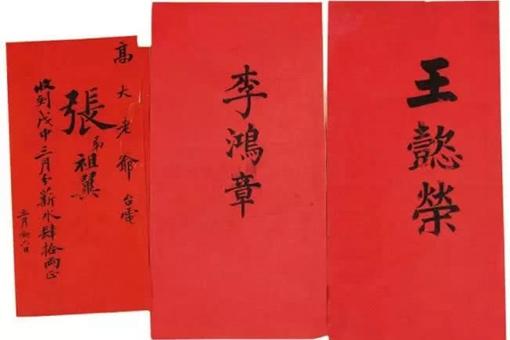 王懿榮
李鴻章
高大老爺台電
張弟祖翼
收到戊申三月分薪水肆拾兩正
三月六日